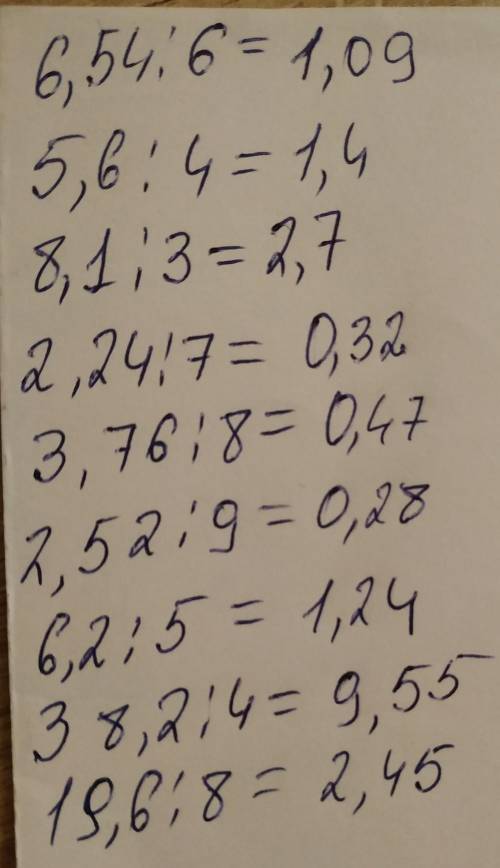 6,54:6=1,09
5,6:4=1,4
8,1:3=2,7
2,24:7=0,32
3,76:8=0,47
2,52:9=0,28
6,2:5=1,24
38,2:4=9,55
19,6:8=2,45